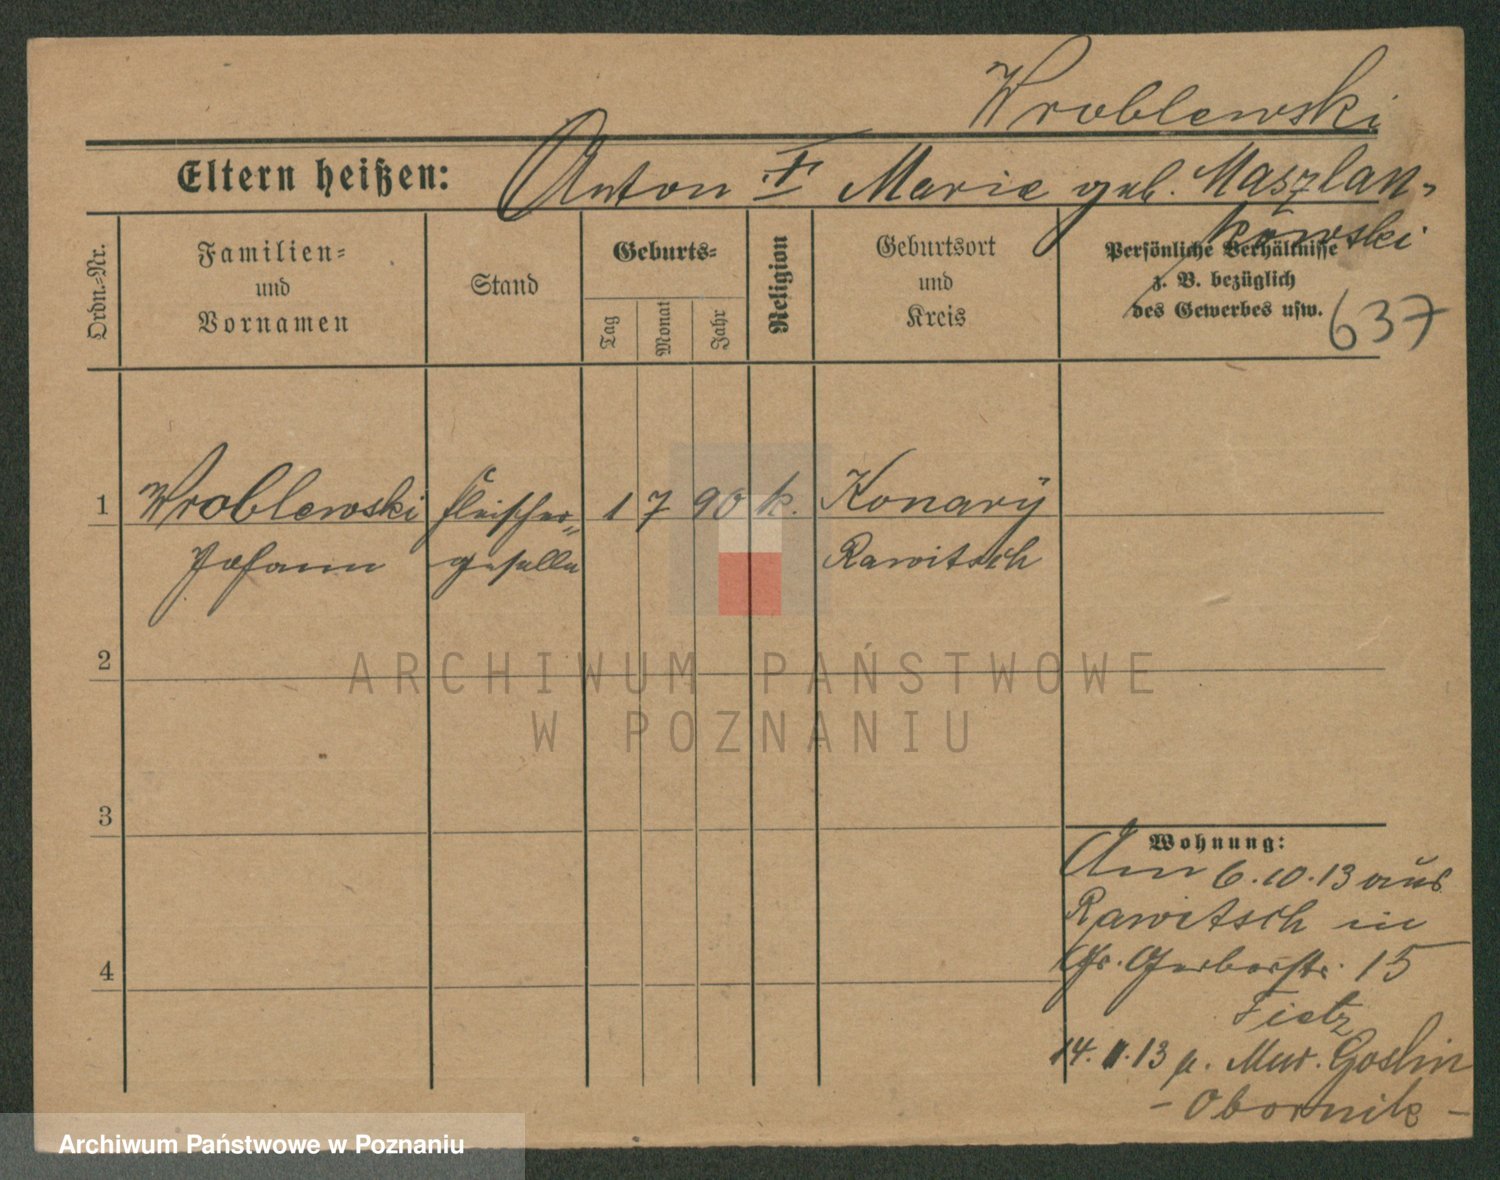 Wroblewski
Eltern heißen: Anton † Marie geb. Maszlan-
kowski
Ordn.-Nr.
Familien-
und
Vornamen
Stand
Geburts-
Tag
Monat
Jahr
Religion
Geburtsort
und
Kreis
Persönliche Verhältnisse
z. B. bezüglich
des Gewerbes usw.
637
1 Wroblewski Fleischer- 1 7 90 k. Konary
Johann geselle Rawitsch
2
ARCHIWUM PAŃSTWOWE
W POZNANIU
3
Wohnung:
Am 6.10.13 aus
Rawitsch in
Gr. Gerberstr. 15
Tietz
4
14. 11. 13 n. Mur. Goslin
- Obornik -
Archiwum Państwowe w Poznaniu